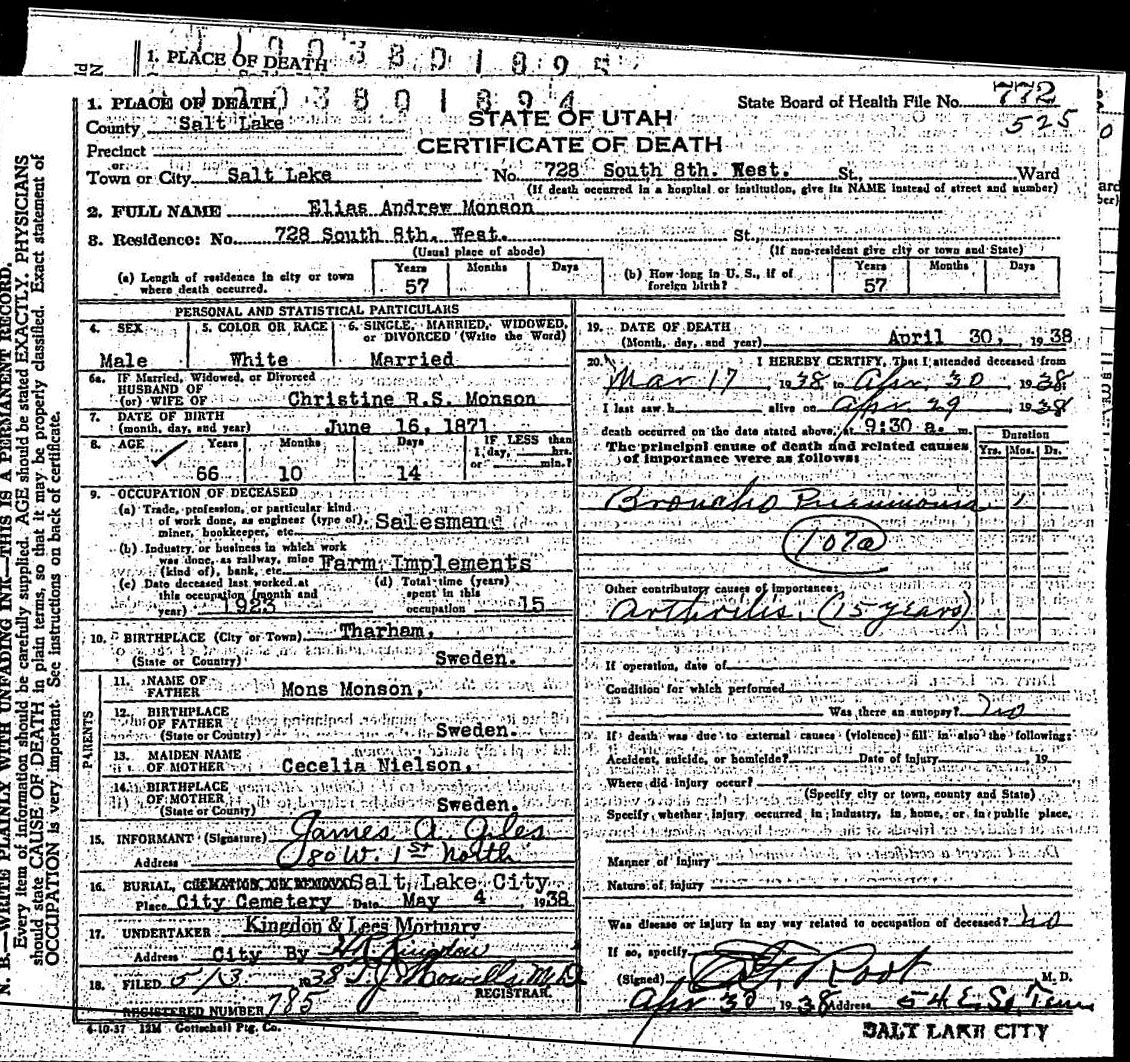 1. PLACE OF DEATH
1. PLACE OF DEATH
State Board of Health File No. 772
525
County Salt Lake
STATE OF UTAH
Precinct
CERTIFICATE OF DEATH
or
Town or City Salt Lake No. 728 South 8th. West. St., Ward
(If death occurred in a hospital or institution, give its NAME instead of street and number)
2. FULL NAME Elias Andrew Monson
3. Residence: No. 728 South 8th. West. St.
(Usual place of abode) (If non-resident give city or town and State)
(a) Length of residence in city or town where death occurred. Years 57 Months Days
(b) How long in U. S., if of foreign birth? Years 57 Months Days
PERSONAL AND STATISTICAL PARTICULARS
4. SEX Male
5. COLOR OR RACE White
6. SINGLE, MARRIED, WIDOWED, or DIVORCED (Write the Word) Married
6a. IF Married, Widowed, or Divorced
HUSBAND OF
(or) WIFE OF Christine R.S. Monson
7. DATE OF BIRTH
(month, day, and year) June 16, 1871
8. AGE Years 66 Months 10 Days 14 IF LESS than 1 day, hrs. or min.?
9. OCCUPATION OF DECEASED
(a) Trade, profession, or particular kind
of work done, as engineer (type of), Salesman
miner, bookkeeper, etc.
(b) Industry or business in which work
was done, as railway, mine Farm Implements
(kind of), bank, etc.
(c) Date deceased last worked at
this occupation (month and
year) 1923
(d) Total time (years)
spent in this
occupation 15
10. BIRTHPLACE (City or Town) Tharham,
(State or Country) Sweden.
PARENTS
11. NAME OF
FATHER Mons Monson,
12. BIRTHPLACE
OF FATHER
(State or Country) Sweden.
13. MAIDEN NAME
OF MOTHER Cecelia Nielson,
14. BIRTHPLACE
OF MOTHER
(State or Country) Sweden.
15. INFORMANT (Signature) James A. Giles
Address 80 W. 1st North
16. BURIAL, CREMATION, OR REMOVAL Salt Lake City
Place City Cemetery Date May 4 1938
17. UNDERTAKER Kingdon & Lees Mortuary
Address City By Kingdon
18. FILED 5/3 1938 T.J. Howells M.D.
REGISTRAR.
REGISTERED NUMBER 785
4-10-37 12M Gottschall Ptg. Co.
19. DATE OF DEATH
(Month, day, and year) April 30, 1938
20. I HEREBY CERTIFY, That I attended deceased from
Mar 17, 1938 to Apr. 30 1938
I last saw h alive on Apr. 29, 1938
death occurred on the date stated above, at 9:30 a. m.
The principal cause of death and related causes
of importance were as follows:
Duration
Yrs. Mos. Ds.
Broncho Pneumonia 1
107a
Other contributory causes of importance:
Arthritis. (15 years)
If operation, date of
Condition for which performed
Was there an autopsy? no
If death was due to external causes (violence) fill in also the following:
Accident, suicide, or homicide? Date of injury , 19
Where did injury occur?
(Specify city or town, county and State)
Specify whether injury occurred in industry, in home, or in public place.
Manner of injury
Nature of injury
Was disease or injury in any way related to occupation of deceased? no
If so, specify
(Signed) Root M. D.
Apr 30 1938 Address 54 E. So. Tem
SALT LAKE CITY
N. B.—WRITE PLAINLY WITH UNFADING INK—THIS IS A PERMANENT RECORD.
Every item of information should be carefully supplied. AGE should be stated EXACTLY. PHYSICIANS
should state CAUSE OF DEATH in plain terms, so that it may be properly classified. Exact statement of
OCCUPATION is very important. See instructions on back of certificate.